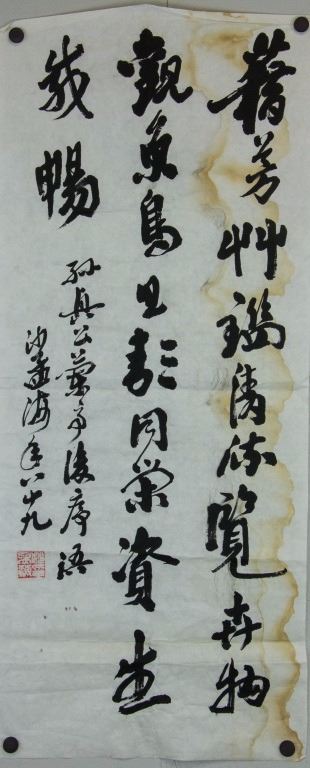 藉芳艸鑑清流覽卉物
觀魚鳥具類同榮資生
咸暢
孫興公蘭亭後序語
沙孟海年八十九